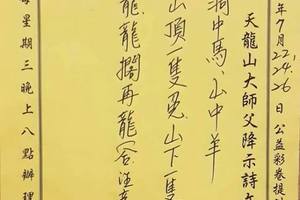 年7月22,24,26日公益彩卷提
天龍山大師父降示詩
洞中馬、山中羊
山頂一隻兎山下一隻
龍龍擱再龍
星期三晚上八點辦理